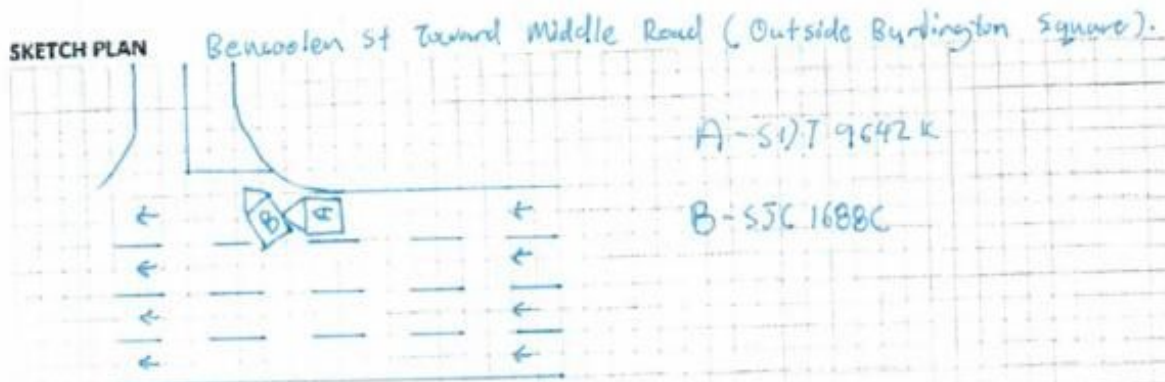 SKETCH PLAN Bencoolen St Toward Middle Road (Outside Burlington Square).
A - SDT 9642K
B - SJC 1688C
A
B